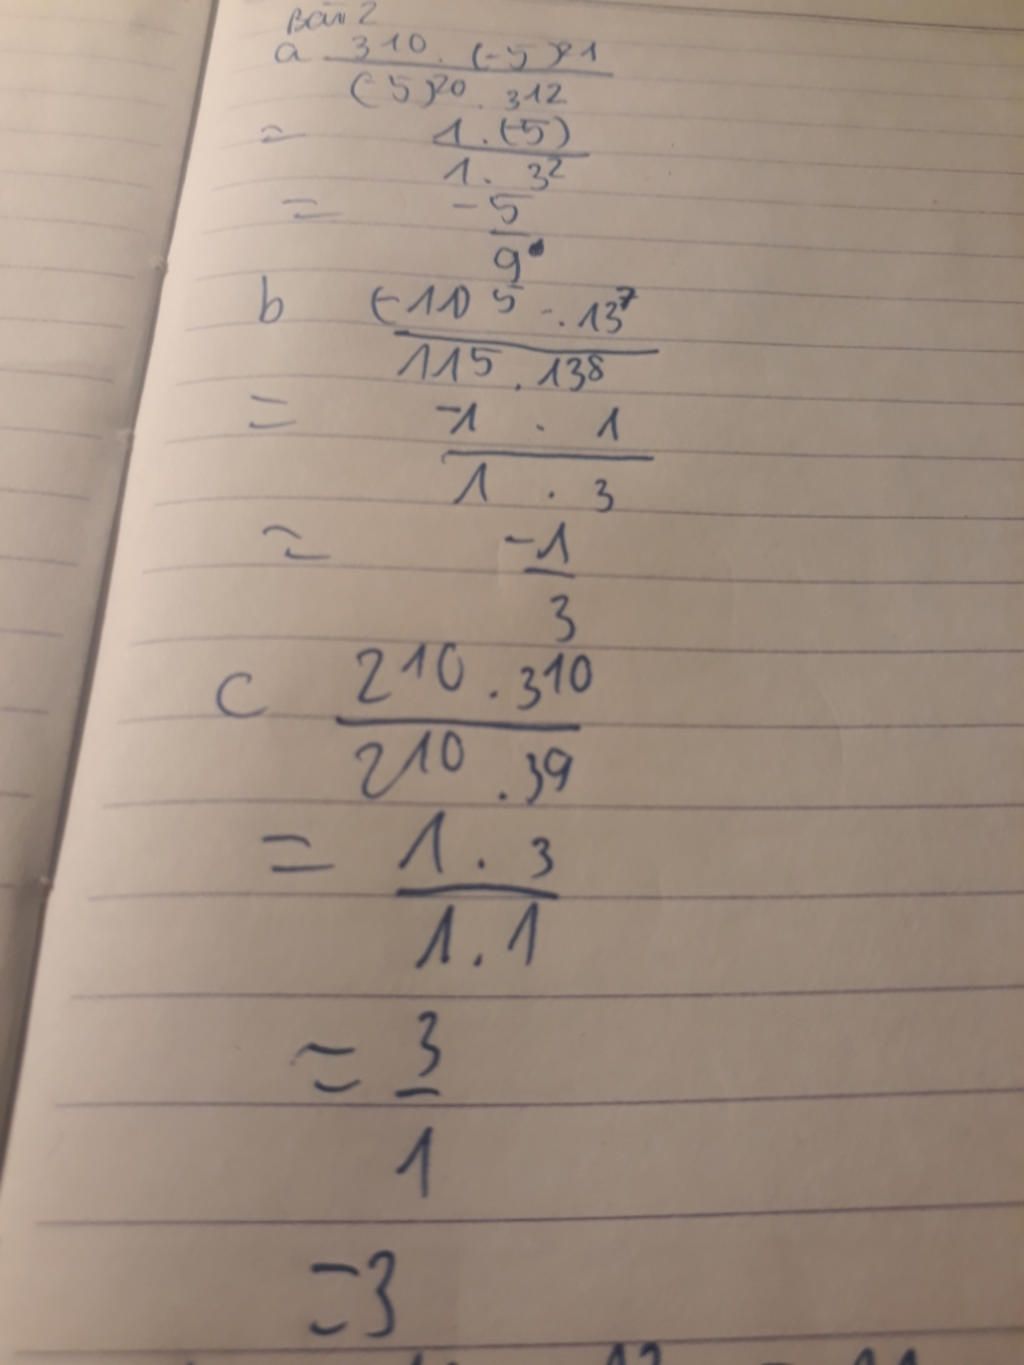 Bài 2
a 3¹⁰ . (-5)²¹
(-5)²⁰ . 3¹²
= 1 . (-5)
1 . 3²
= -5
9
b (-11)⁵ . 13⁷
11⁵ . 13⁸
= -1 . 1
1 . 3
= -1
3
c 2¹⁰ . 3¹⁰
2¹⁰ . 3⁹
= 1 . 3
1 . 1
= 3
1
= 3